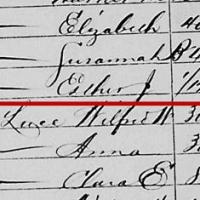 — Elizabeth 4
— Susannah B 4
— Esther J 1/1
Luce Wilfred W 3
— Anna 3
— Clara E 8